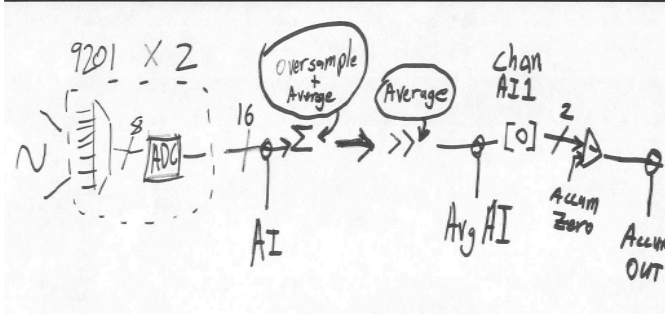 9201 X 2
Oversample
+
Average
Average
Chan
AI1
8
ADC
16
Σ
>>
[0]
2
AI
Avg AI
Accum
Zero
Accum
OUT